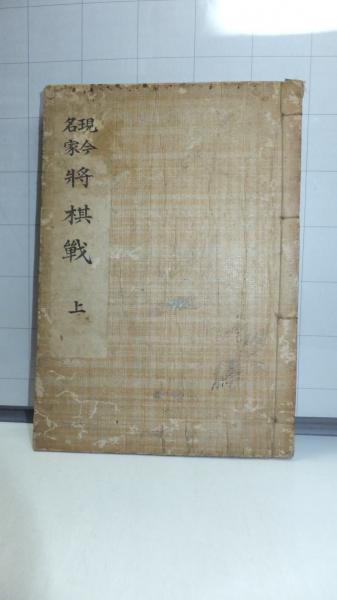 現今
名家
將棋戰
上